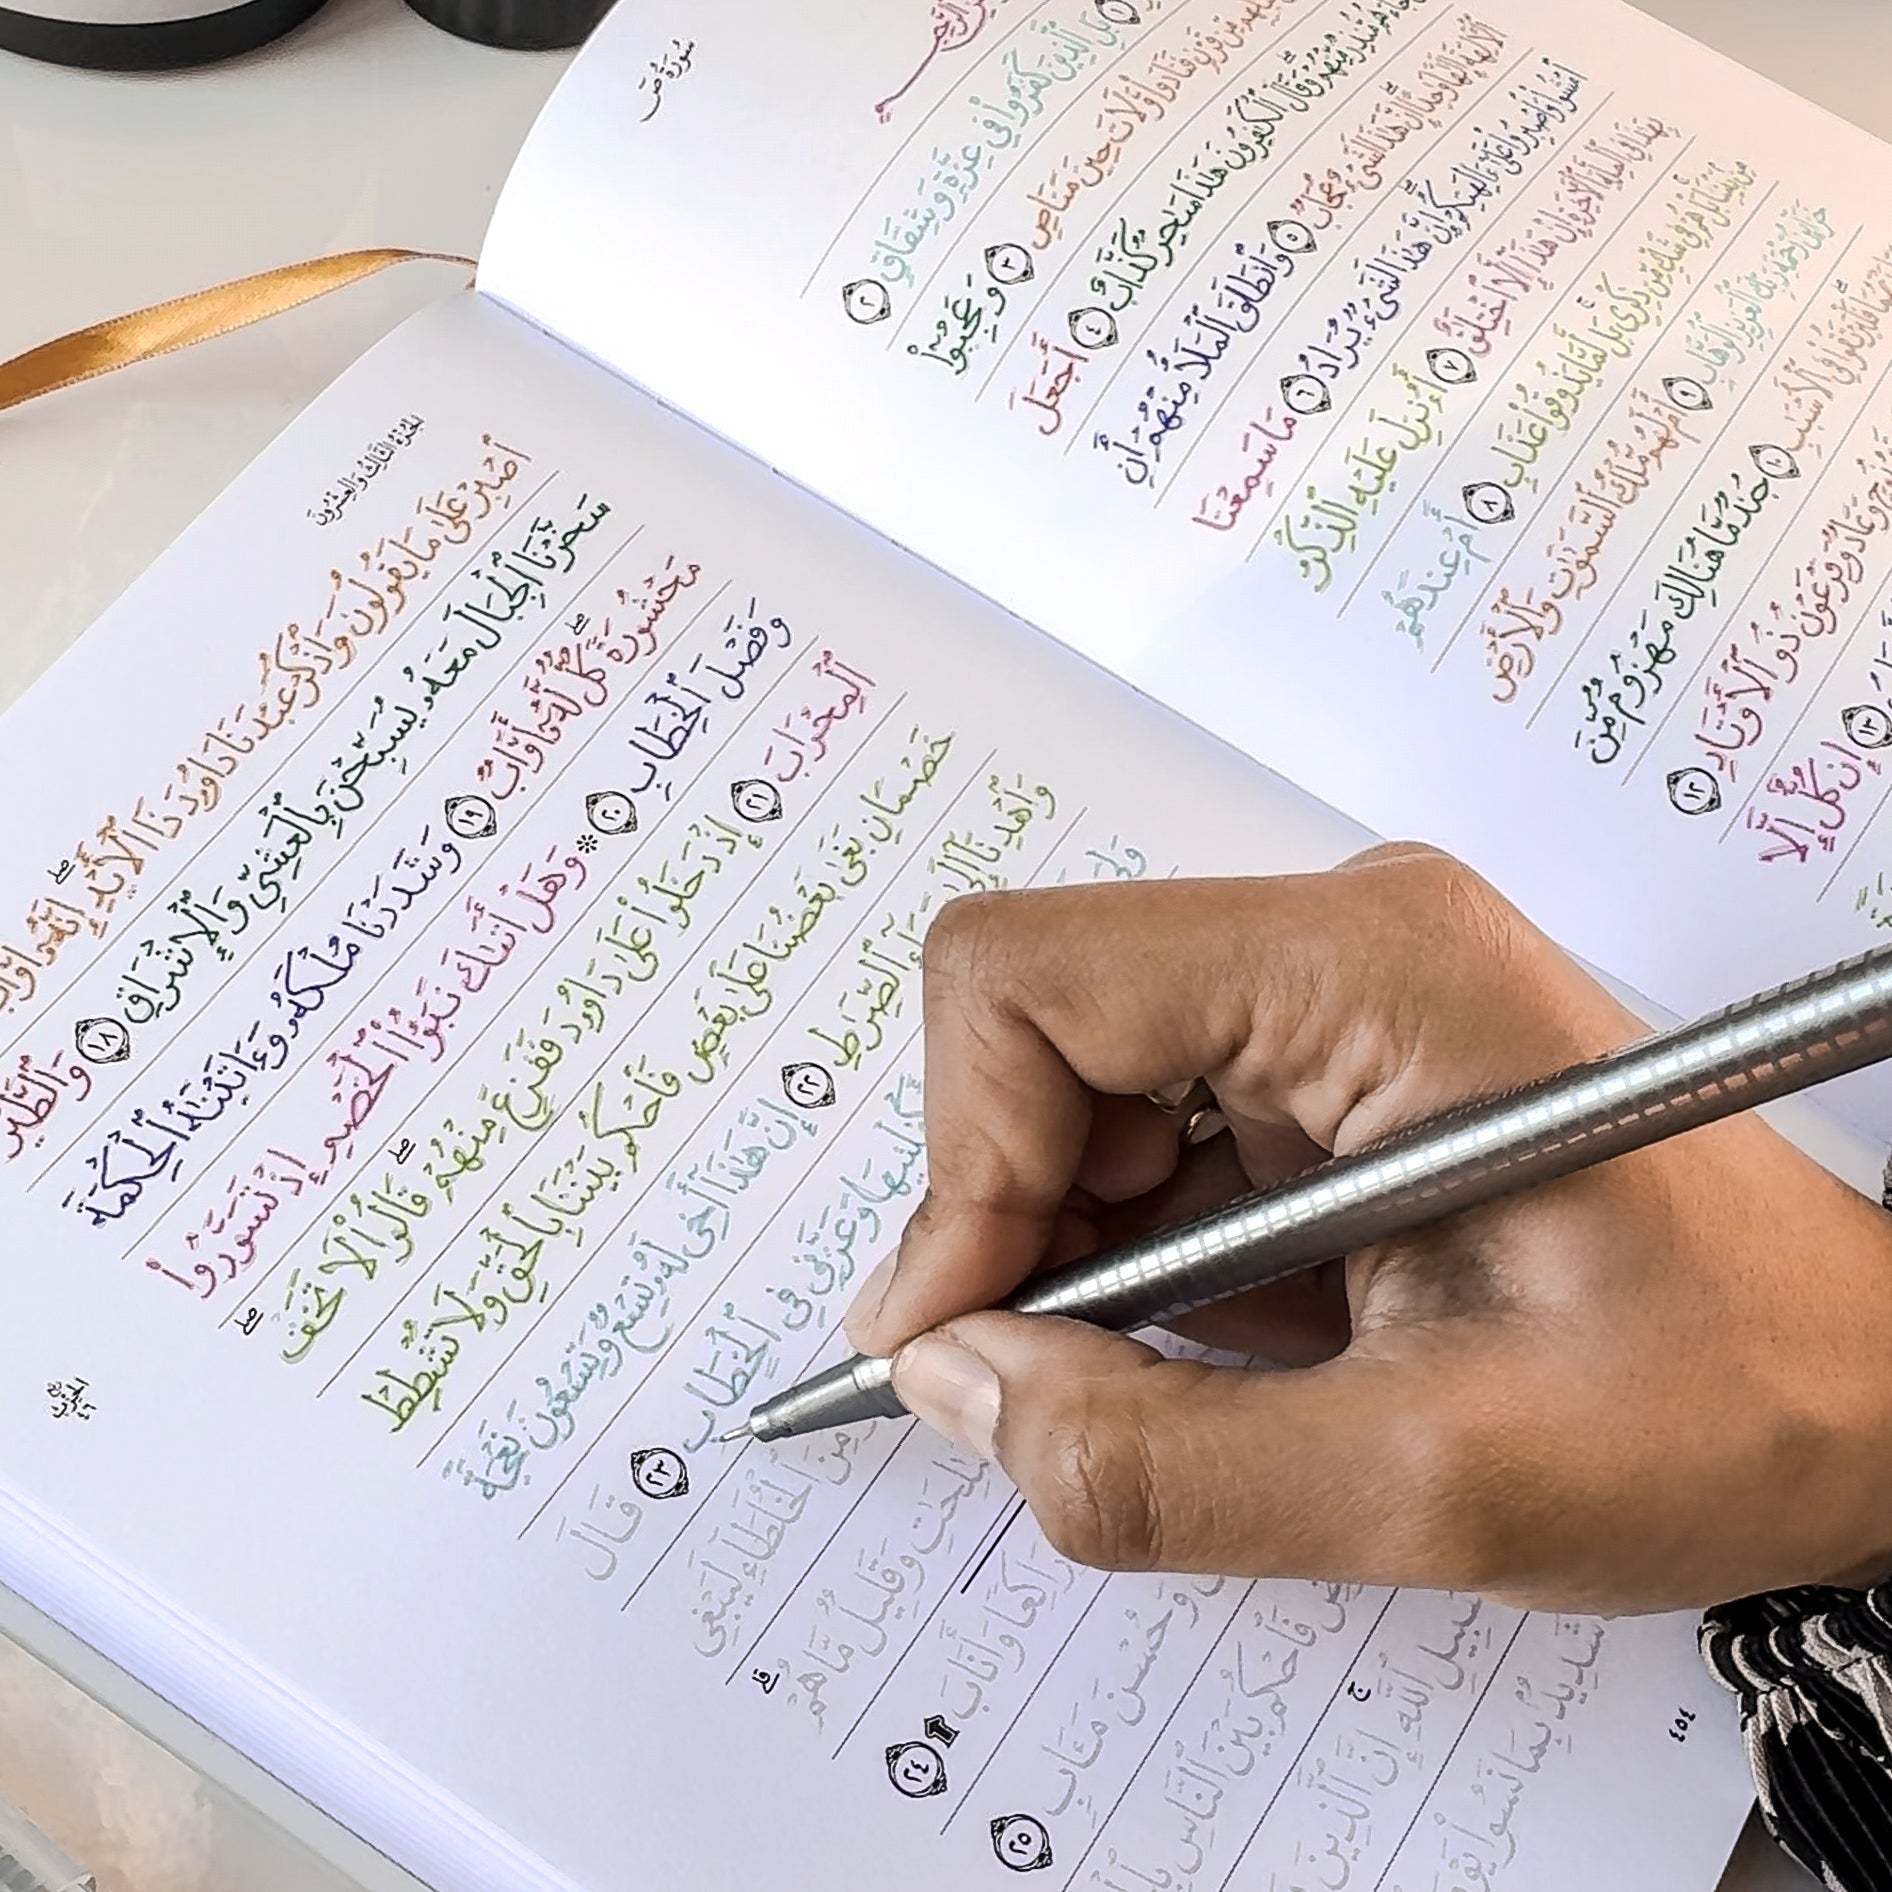 سُورَةُ صٓ
بَلِ ٱلَّذِينَ كَفَرُوا۟ فِى عِزَّةٍ وَشِقَاقٍ ٢
مِّن قَرْنٍ فَنَادَوا۟ وَّلَاتَ حِينَ مَنَاصٍ ٣ وَعَجِبُوٓا۟
جَآءَهُم مُّنذِرٌ مِّنْهُمْ وَقَالَ ٱلْكَـٰفِرُونَ هَـٰذَا سَـٰحِرٌ كَذَّابٌ ٤ أَجَعَلَ
ٱلْـَٔالِهَةَ إِلَـٰهًا وَٰحِدًا إِنَّ هَـٰذَا لَشَىْءٌ عُجَابٌ ٥ وَٱنطَلَقَ ٱلْمَلَأُ مِنْهُمْ أَنِ
ٱمْشُوا۟ وَٱصْبِرُوا۟ عَلَىٰٓ ءَالِهَتِكُمْ إِنَّ هَـٰذَا لَشَىْءٌ يُرَادُ ٦ مَا سَمِعْنَا
بِهَـٰذَا فِى ٱلْمِلَّةِ ٱلْـَٔاخِرَةِ إِنْ هَـٰذَآ إِلَّا ٱخْتِلَـٰقٌ ٧ أَءُنزِلَ عَلَيْهِ ٱلذِّكْرُ
مِنۢ بَيْنِنَا بَلْ هُمْ فِى شَكٍّ مِّن ذِكْرِى بَل لَّمَّا يَذُوقُوا۟ عَذَابِ ٨ أَمْ عِندَهُمْ
خَزَآئِنُ رَحْمَةِ رَبِّكَ ٱلْعَزِيزِ ٱلْوَهَّابِ ٩ أَمْ لَهُم مُّلْكُ ٱلسَّمَـٰوَٰتِ وَٱلْأَرْضِ
فَلْيَرْتَقُوا۟ فِى ٱلْأَسْبَـٰبِ ١٠ جُندٌ مَّا هُنَالِكَ مَهْزُومٌ مِّنَ
نُوحٍ وَعَادٌ وَفِرْعَوْنُ ذُو ٱلْأَوْتَادِ ١٢
١٣ إِن كُلٌّ إِلَّا
ٱلْجُزْءُ ٱلثَّالِثُ وَٱلْعِشْرُونَ
ٱصْبِرْ عَلَىٰ مَا يَقُولُونَ وَٱذْكُرْ عَبْدَنَا دَاوُۥدَ ذَا ٱلْأَيْدِ ۖ إِنَّهُۥٓ أَوَّابٌ
سَخَّرْنَا ٱلْجِبَالَ مَعَهُۥ يُسَبِّحْنَ بِٱلْعَشِىِّ وَٱلْإِشْرَاقِ ١٨ وَٱلطَّيْرَ
مَحْشُورَةً ۖ كُلٌّ لَّهُۥٓ أَوَّابٌ ١٩ وَشَدَدْنَا مُلْكَهُۥ وَءَاتَيْنَـٰهُ ٱلْحِكْمَةَ
وَفَصْلَ ٱلْخِطَابِ ٢٠ ۞ وَهَلْ أَتَىٰكَ نَبَؤُا۟ ٱلْخَصْمِ إِذْ تَسَوَّرُوا۟
ٱلْمِحْرَابَ ٢١ إِذْ دَخَلُوا۟ عَلَىٰ دَاوُۥدَ فَفَزِعَ مِنْهُمْ ۖ قَالُوا۟ لَا تَخَفْ ۖ
خَصْمَانِ بَغَىٰ بَعْضُنَا عَلَىٰ بَعْضٍ فَٱحْكُم بَيْنَنَا بِٱلْحَقِّ وَلَا تُشْطِطْ
وَٱهْدِنَآ إِلَىٰ سَوَآءِ ٱلصِّرَٰطِ ٢٢ إِنَّ هَـٰذَآ أَخِى لَهُۥ تِسْعٌ وَتِسْعُونَ نَعْجَةً
وَلِىَ أَكْفِلْنِيهَا وَعَزَّنِى فِى ٱلْخِطَابِ ٢٣ قَالَ
مِّنَ ٱلْخُلَطَآءِ لَيَبْغِى
وَقَلِيلٌ مَّا هُمْ ۗ
رَاكِعًا وَأَنَابَ ٢٤
وَحُسْنَ مَـَٔابٍ ٢٥
فَٱحْكُم بَيْنَ ٱلنَّاسِ
سَبِيلِ ٱللَّهِ ۚ إِنَّ ٱلَّذِينَ
شَدِيدٌۢ بِمَا نَسُوا۟ يَوْمَ
ٱلْحِزْب ٤٦
٤٥٤